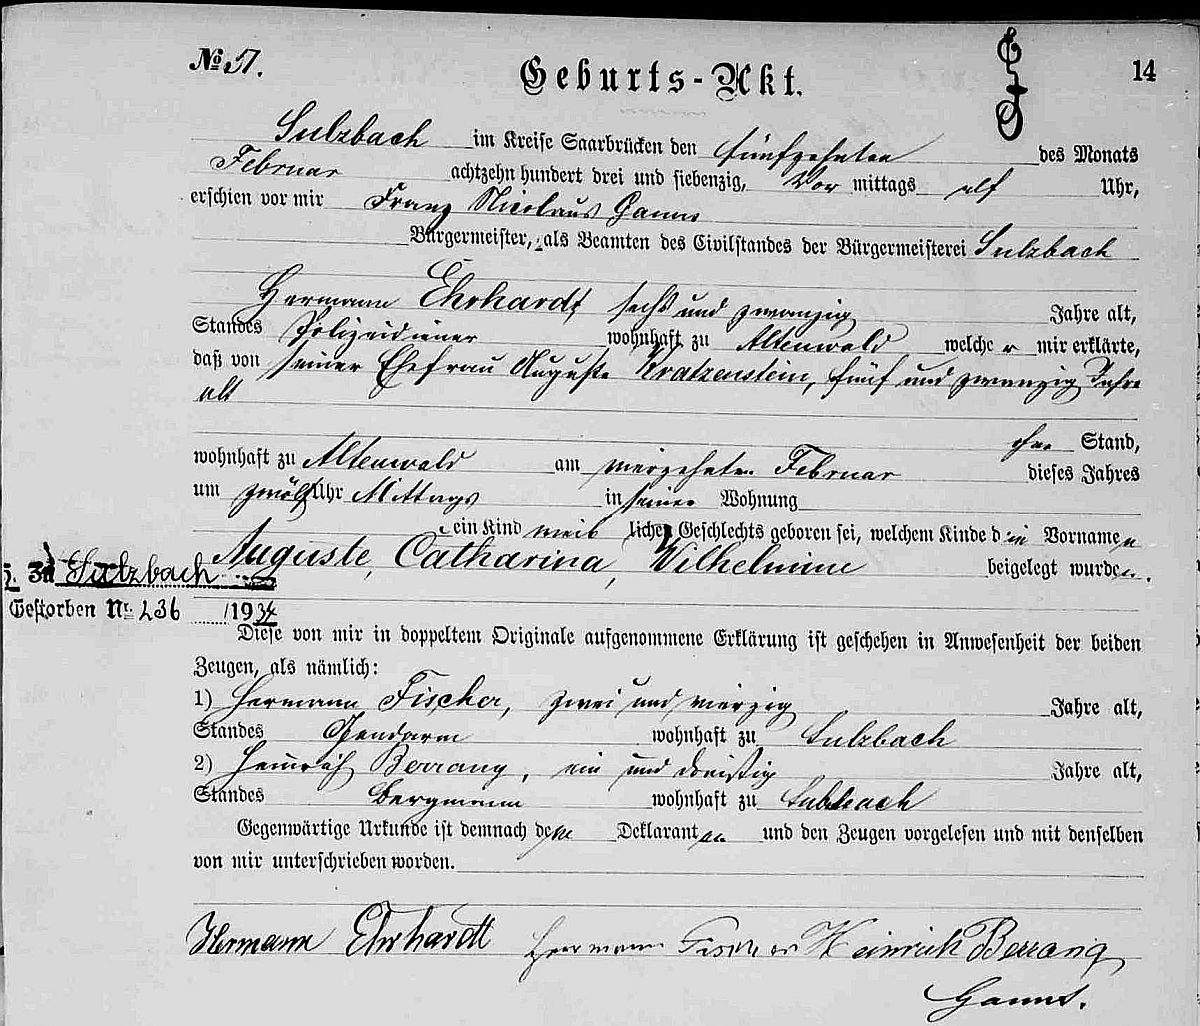 № 51.
Geburts-Akt.
14
Sulzbach im Kreise Saarbrücken den fünfzehnten des Monats
Februar achtzehn hundert drei und siebenzig, Vor mittags elf Uhr,
erschien vor mir Franz Nicolaus
Bürgermeister, als Beamten des Civilstandes der Bürgermeisterei Sulzbach
Hermann Ehrhardt sechs und zwanzig Jahre alt,
Standes Polizeidiener wohnhaft zu Altenwald welche r mir erklärte,
daß von seiner Ehefrau Auguste Kratzenstein, fünf und zwanzig Jahre
alt
ohne Stand,
wohnhaft zu Altenwald am vierzehnten Februar dieses Jahres
um zwölf Uhr Mittags in seiner Wohnung
ein Kind weib lichen Geschlechts geboren sei, welchem Kinde die Vornamen
Auguste, Catharina, Wilhelmine beigelegt wurden.
z. Zu Sulzbach
Gestorben Nr. 236 /1934
Diese von mir in doppeltem Originale aufgenommene Erklärung ist geschehen in Anwesenheit der beiden
Zeugen, als nämlich:
1) Hermann Fischer, zwei und vierzig Jahre alt,
Standes Gendarm wohnhaft zu Sulzbach
2) Heinrich Berrang, ein und dreißig Jahre alt,
Standes Bergmann wohnhaft zu Sulzbach
Gegenwärtige Urkunde ist demnach dem Deklaranten und den Zeugen vorgelesen und mit denselben
von mir unterschrieben worden.
Hermann Ehrhardt Herrmann Fischer Heinrich Berrang